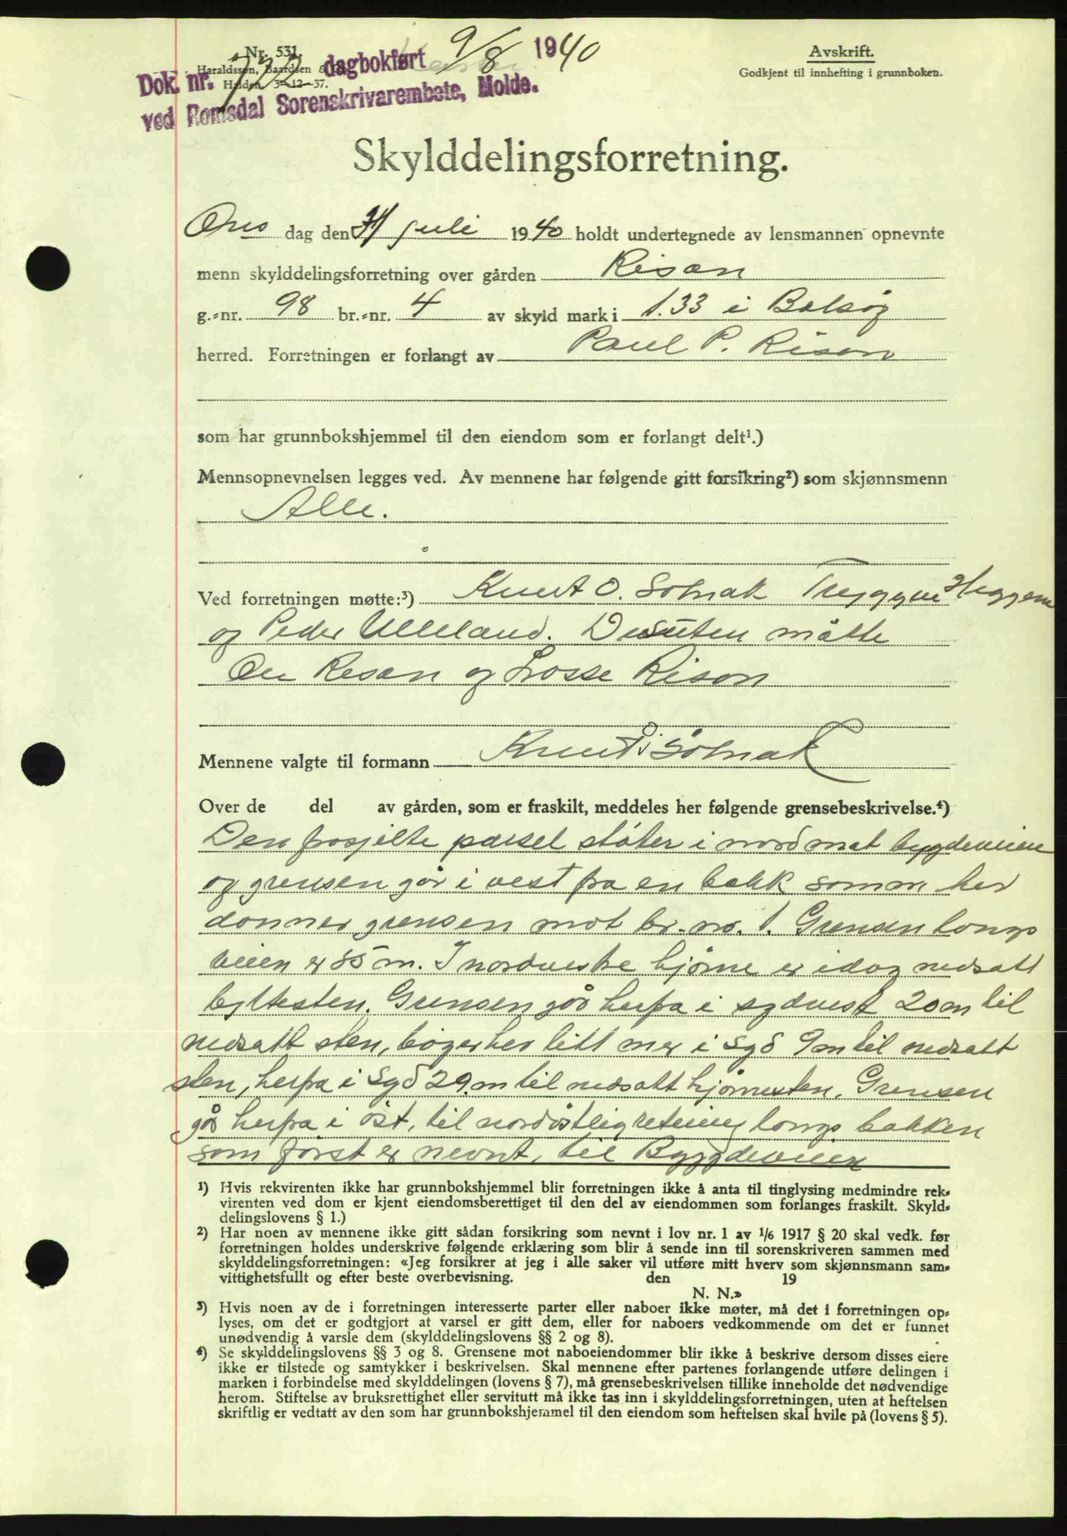 Nr. 531.
Haraldssen, Baardsen &
Halden. 3-12-37.
Dok. nr. 732 dagbokført 9/8 1940
ved Romsdal Sorenskrivarembete, Molde.
Avskrift.
Godkjent til innhefting i grunnboken.
Skylddelingsforretning.
Ons dag den 31 juli 1940 holdt undertegnede av lensmannen opnevnte
menn skylddelingsforretning over gården Risan
g.-nr. 98 br.-nr. 4 av skyld mark i 1.33 i Bolsøy
herred. Forretningen er forlangt av Paul P. Risan
som har grunnbokshjemmel til den eiendom som er forlangt delt¹.)
Mennsopnevnelsen legges ved. Av mennene har følgende gitt forsikring²) som skjønnsmenn
Alle.
Ved forretningen møtte:³) Knut O. Solnak Tryggve Heggem
og Peder Ulleland. Desuten måtte
Ole Risan og Lasse Risan
Mennene valgte til formann Knut O. Solnak
Over de del av gården, som er fraskilt, meddeles her følgende grensebeskrivelse.⁴)
Den frasjelte parsel støter i nord mot bygdeveien
og grensen går i vest fra en bekk somm her
danner grensen mot br. nr. 1. Grensen langs
veien er 85 m. I nordvestre hjørne er idag nedsatt
byttesten. Grensen går herfra i sydvest 20 m til
nedsatt sten, bøyer her litt mer i Syd 9 m til nedsatt
sten, herfra i Syd 29. m til nedsatt hjørnesten. Grensen
går herfra i øst, til nordøstlig retning langs bekken
som først er nevnt, til Bygdeveien
¹) Hvis rekvirenten ikke har grunnbokshjemmel blir forretningen ikke å anta til tinglysing medmindre rek-
virenten ved dom er kjent eiendomsberettiget til den del av eiendommen som forlanges fraskilt. Skyld-
delingslovens § 1.)
²) Har noen av mennene ikke gitt sådan forsikring som nevnt i lov nr. 1 av 1/6 1917 § 20 skal vedk. før
forretningen holdes underskrive følgende erklæring som blir å sende inn til sorenskriveren sammen med
skylddelingsforretningen: «Jeg forsikrer at jeg i alle saker vil utføre mitt hverv som skjønnsmann sam-
vittighetsfullt og efter beste overbevisning. den 19
N. N.»
³) Hvis noen av de i forretningen interesserte parter eller naboer ikke møter, må det i forretningen op-
lyses, om det er godtgjort at varsel er gitt dem, eller for naboers vedkommende om det er funnet
unødvendig å varsle dem (skylddelingslovens §§ 2 og 8).
⁴) Se skylddelingslovens §§ 3 og 8. Grensene mot naboeiendommer blir ikke å beskrive dersom disses eiere
ikke er tilstede og samtykker i beskrivelsen. Skal mennene efter partenes forlangende utføre delingen i
marken i forbindelse med skylddelingen (lovens § 7), må grensebeskrivelsen tillike inneholde det nødvendige
herom. Stiftelse av bruksrettighet eller servitutt må ikke tas inn i skylddelingsforretningen, uten at heftelsen
skriftlig er vedtatt av den som har grunnbokshjemmel til den eiendom som heftelsen skal hvile på (lovens § 5).